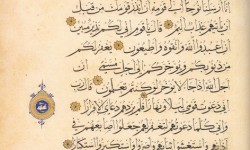 انا ارسلنا نوحا الى قومه ان انذر قومك من قبل
ان ياتيهم عذاب اليم قال يقوم انى لكم نذير مبين
ان اعبدوا الله واتقوه واطيعون يغفر لكم
من ذنوبكم ويؤخركم الى اجل مسمى ان
اجل الله اذا جاء لا يؤخر لو كنتم تعلمون قال رب
انى دعوت قومى ليلا ونهارا فلم يزدهم دعاءى الا فرارا
وانى كلما دعوتهم لتغفر لهم جعلوا اصابعهم فى
اذانهم واستغشوا ثيابهم واصروا واستكبروا